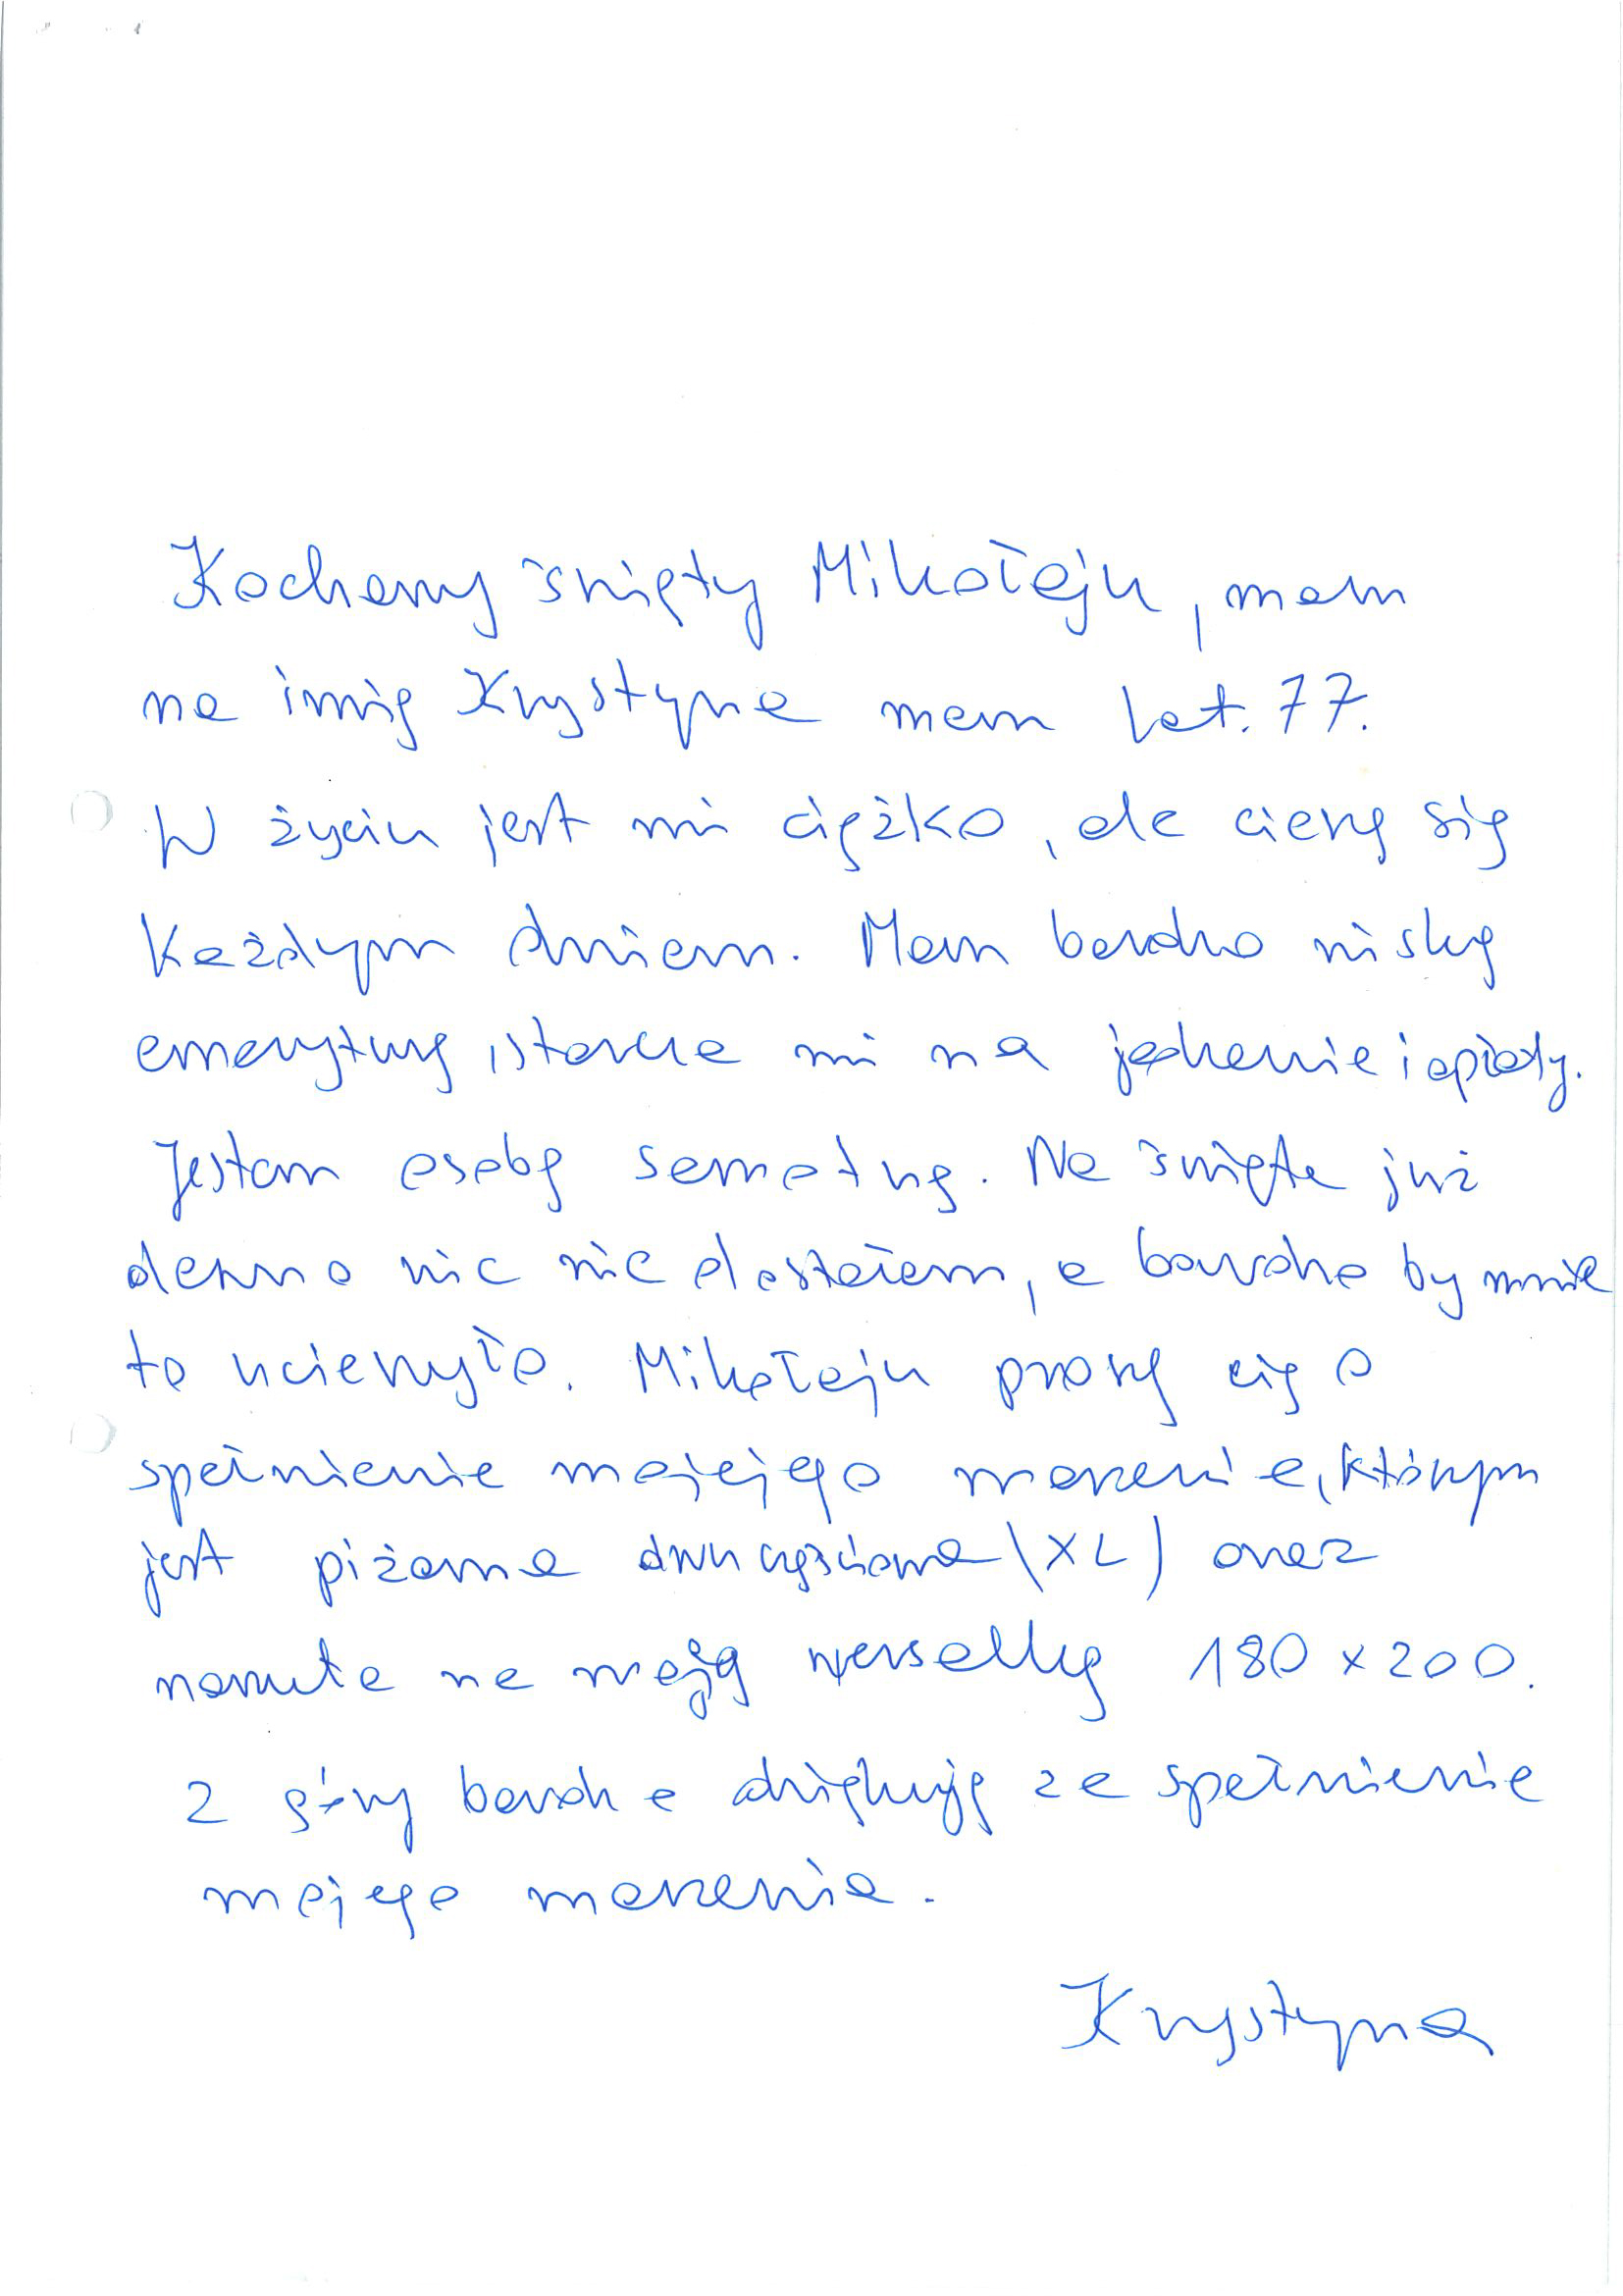 Kochany święty Mikołaju, mam
na imię Krystyna mam lat. 77.
W życiu jest mi ciężko, ale cieszę się
każdym dniem. Mam bardzo niską
emeryturę, starcza mi na jedzenie i opłaty.
Jestem osobą samotną. Na święta już
dawno nic nie dostałam, a bardzo by mnie
to ucieszyło. Mikołaju proszę cię o
spełnienie mojejego marzenia, którym
jest piżama dwuczęściowa (XL) oraz
narzuta na moją wersalkę 180 x 200.
Z góry bardzo dziękuję za spełnienie
mojego marzenia.
Krystyna